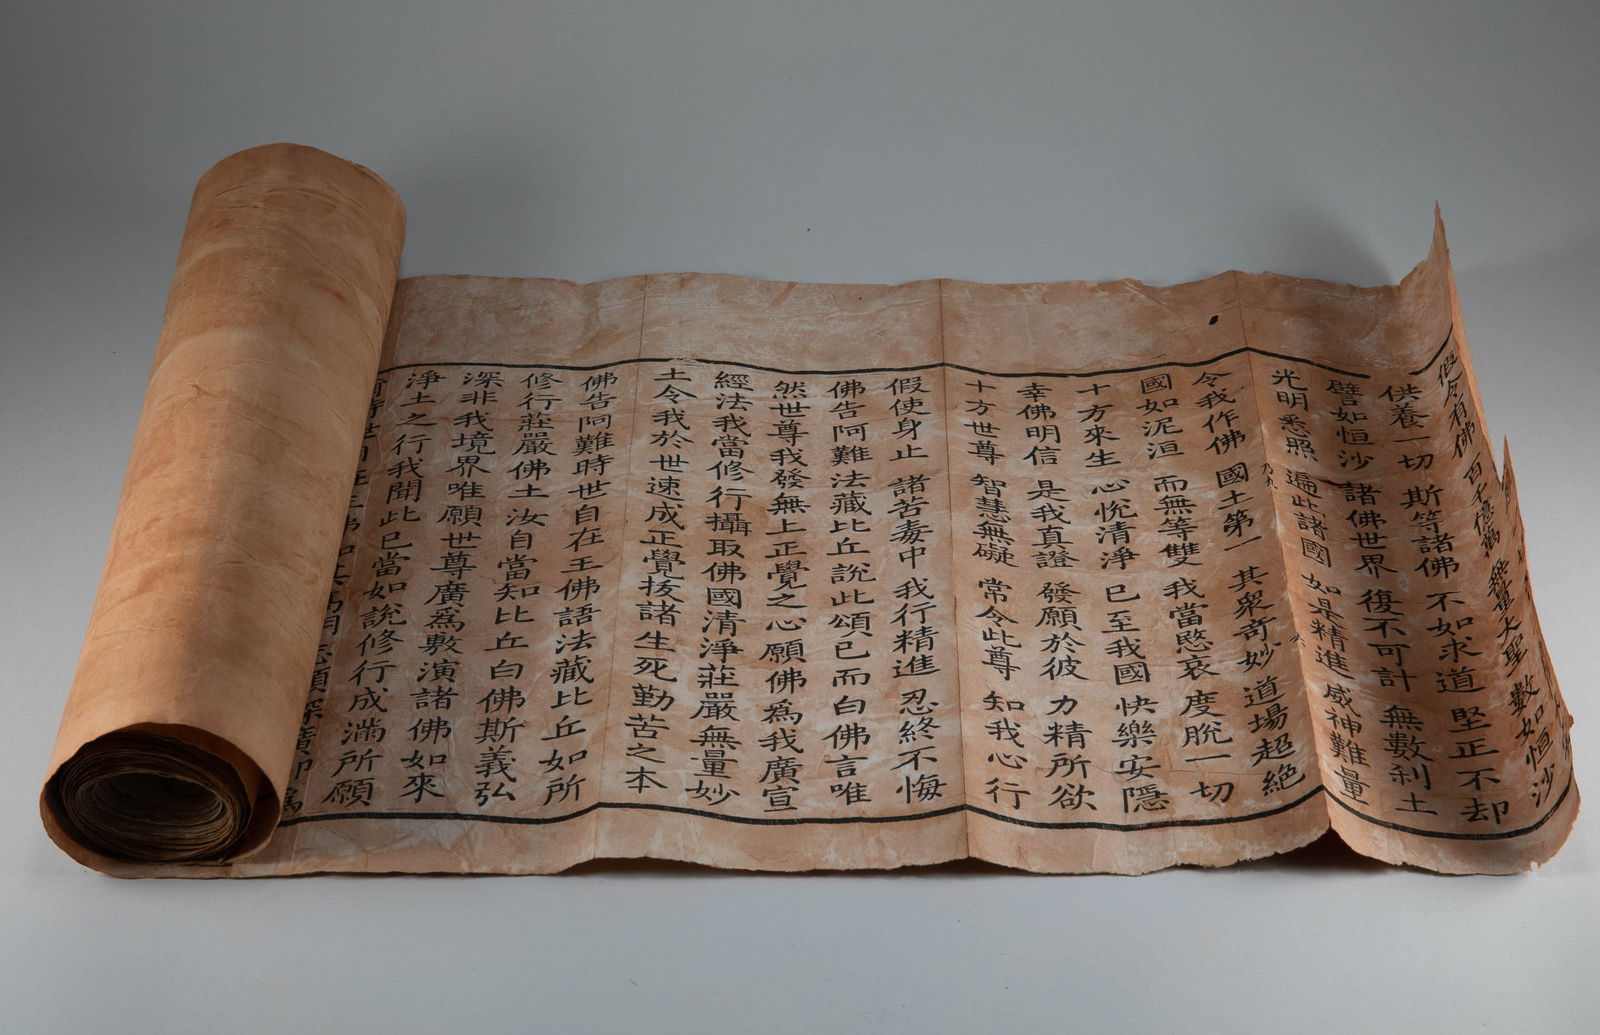 假令有佛 百千億萬 無量大聖 數如恒沙
供養一切 斯等諸佛 不如求道 堅正不却
譬如恒沙 諸佛世界 復不可計 無數刹土
光明悉照 遍此諸國 如是精進 威神難量
令我作佛 國土第一 其衆奇妙 道場超絶
國如泥洹 而無等雙 我當愍哀 度脫一切
十方來生 心悅清淨 已至我國 快樂安隱
幸佛明信 是我真證 發願於彼 力精所欲
十方世尊 智慧無礙 常令此尊 知我心行
假使身止 諸苦毒中 我行精進 忍終不悔
佛告阿難法藏比丘說此頌已而白佛言唯
然世尊我發無上正覺之心願佛為我廣宣
經法我當修行攝取佛國清淨莊嚴無量妙
土令我於世速成正覺拔諸生死勤苦之本
佛告阿難時世自在王佛語法藏比丘如所
修行莊嚴佛土汝自當知比丘白佛斯義弘
深非我境界唯願世尊廣為敷演諸佛如來
淨土之行我聞此已當如說修行成滿所願